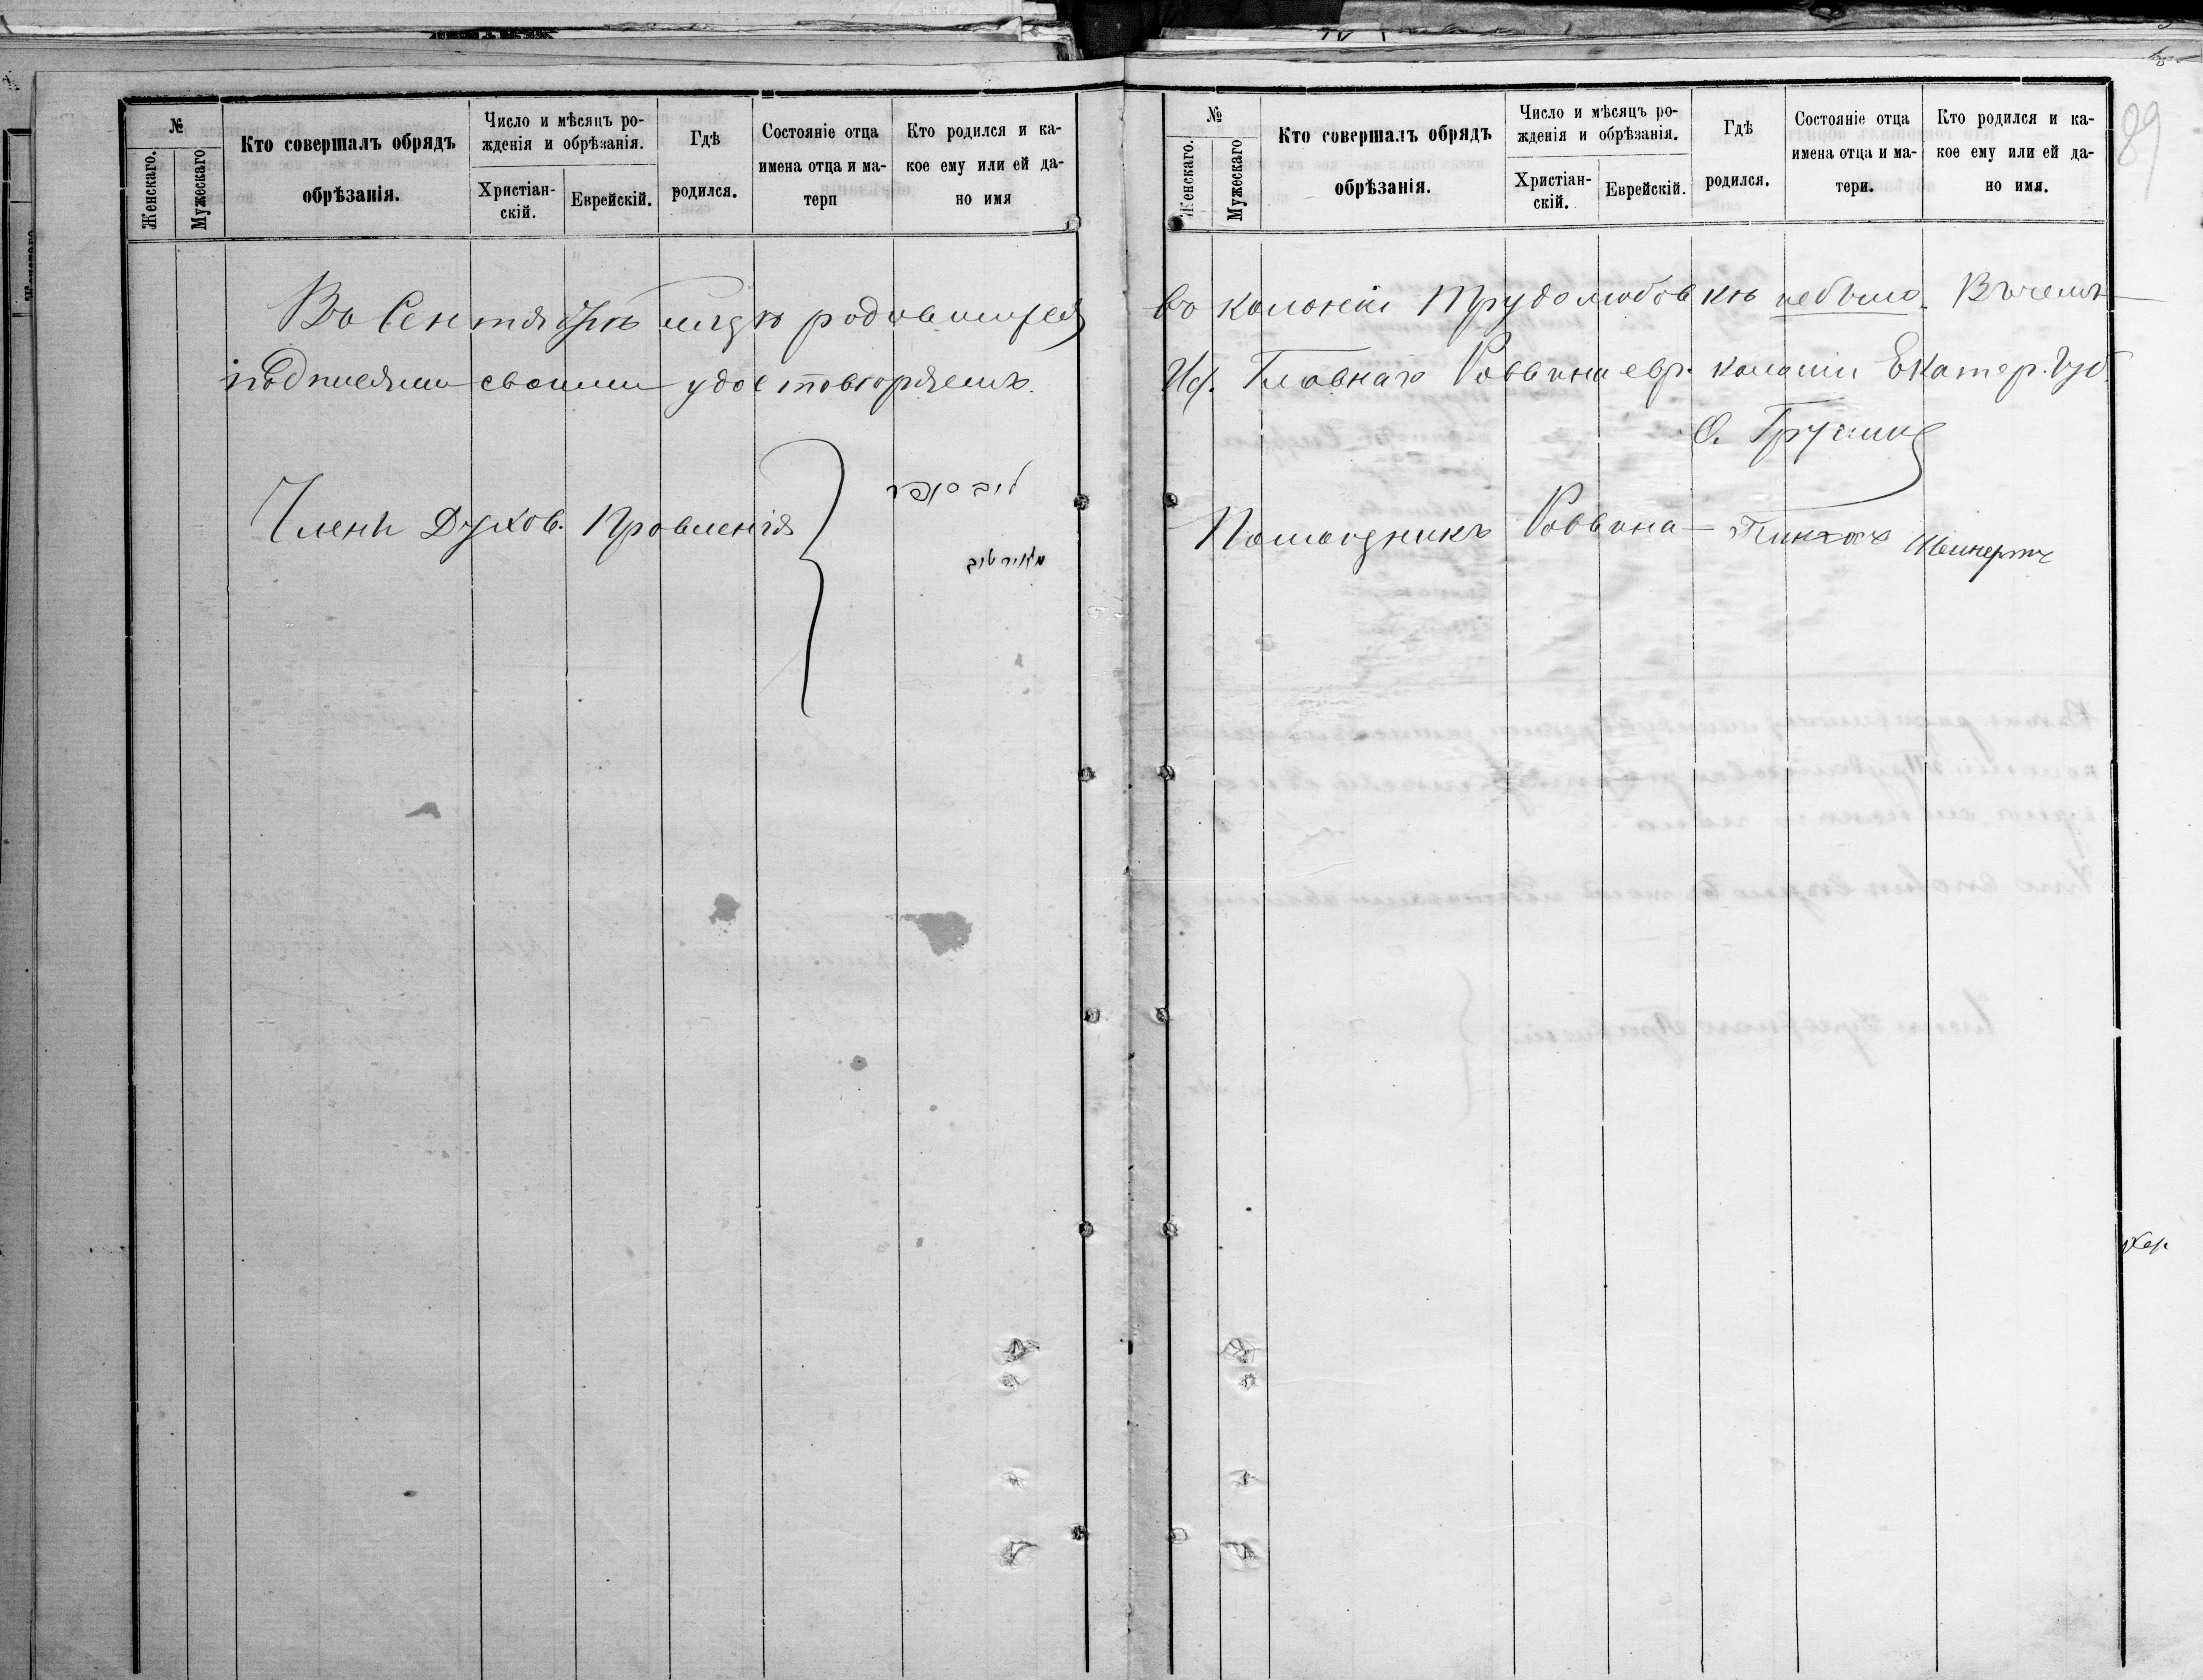 №
Женскаго.
Мужескаго
Кто совершалъ обрядъ
обрѣзанія.
Число и мѣсяцъ ро-
жденія и обрѣзанія.
Христіан-
скій.
Еврейскій.
Гдѣ
родился.
Состояніе отца
имена отца и ма-
терп
Кто родился и ка-
кое ему или ей да-
но имя
Въ Сентябрѣ м-цѣ родившихся
подписями своими удостовѣряемъ.
Члени Духов. Правленія
מאיר
№
Женскаго.
Мужескаго
Кто совершалъ обрядъ
обрѣзанія.
Число и мѣсяцъ ро-
жденія и обрѣзанія.
Христіан-
скій.
Еврейскій.
Гдѣ
родился.
Состояніе отца
имена отца и ма-
тери.
Кто родился и ка-
кое ему или ей да-
но имя.
89
въ колоніи Трудолюбовкѣ небыло. Въ чемъ
И. Главнаго Раввина евр. колоніи Екатер. Губ.
Помощникъ Раввина Пинхасъ